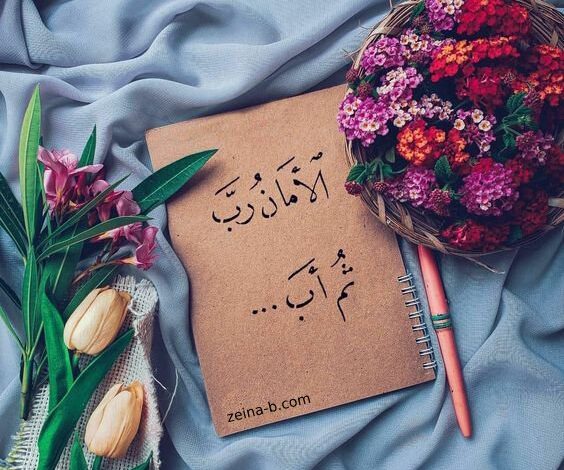 الأمان رَبَّ
ثُم أَبَ ...
zeina-b.com